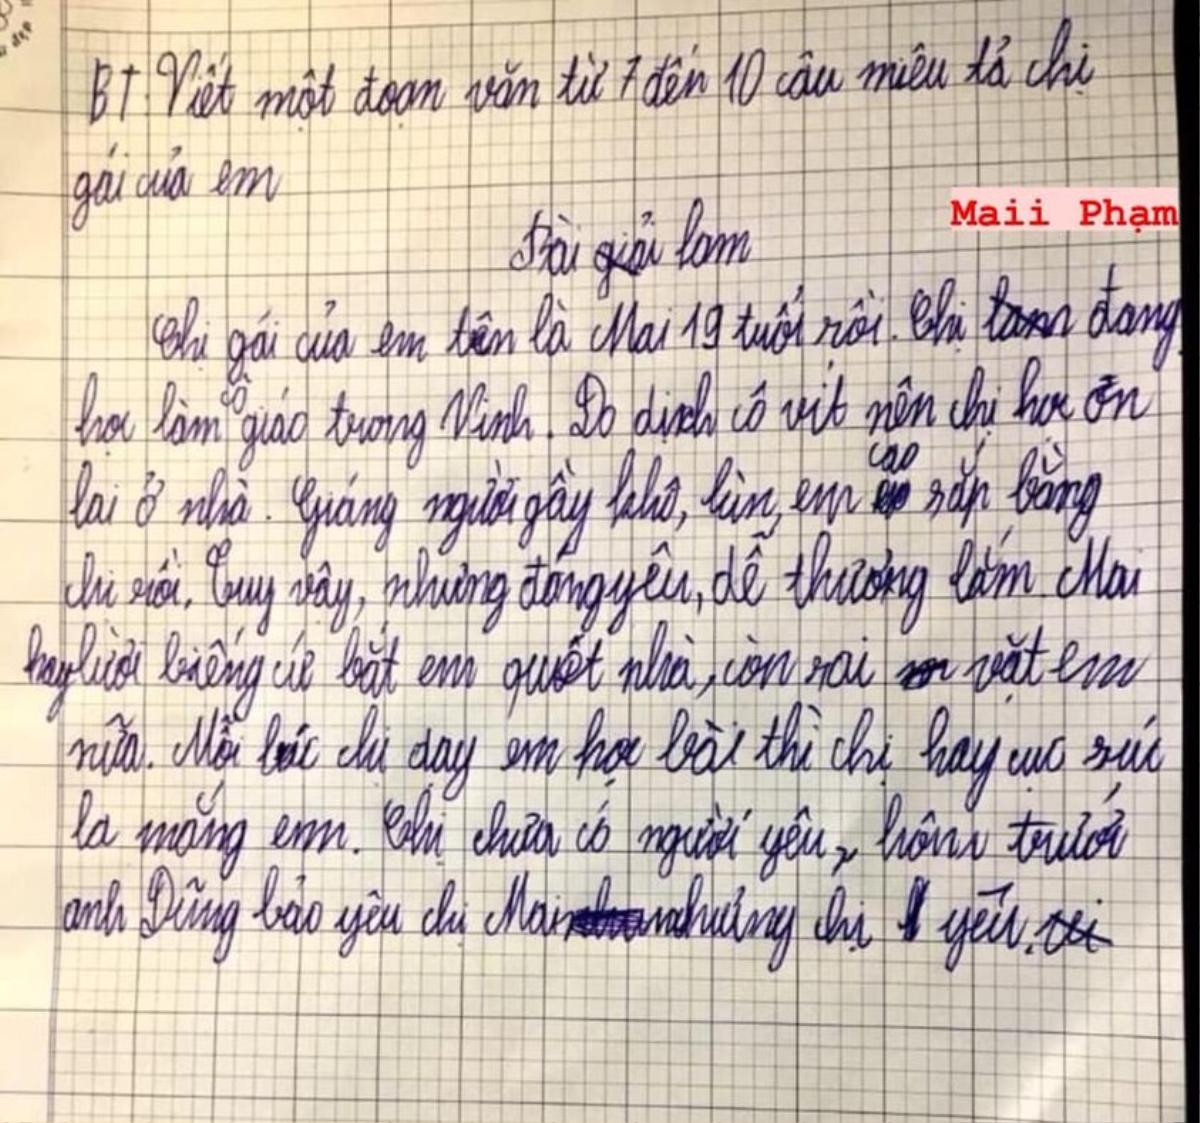 BT. Viết một đoạn văn từ 7 đến 10 câu miêu tả chị
gái của em
Maii Phạm
Bài giải lam
Chị gái của em tên là Mai 19 tuổi rồi. Chị đang
học làm cô giáo trong Vinh. Do dịch cô vít nên chị học ôn
lai ở nhà. Giáng người gầy khô, lùn, em cao sắp bằng
chị rồi. Tuy vậy, nhưng đángyêu, dễ thương lắm Mai
hay lười biếng cứ bắt em quét nhà, còn sai vặt em
nữa. Mỗi lúc chị dạy em học bài thì chị hay cục súc
la mắng em. Chị chưa có người yêu, hôm trước
anh Dũng bảo yêu chị Mai nhưng chị k yêu.